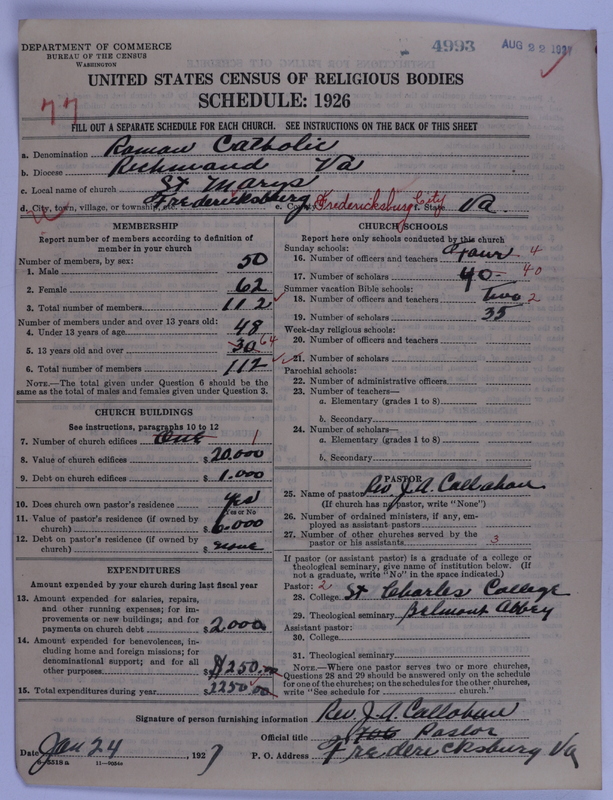 DEPARTMENT OF COMMERCE
BUREAU OF THE CENSUS
WASHINGTON
4993
AUG 22 1927
UNITED STATES CENSUS OF RELIGIOUS BODIES
SCHEDULE: 1926
77
FILL OUT A SEPARATE SCHEDULE FOR EACH CHURCH. SEE INSTRUCTIONS ON THE BACK OF THIS SHEET
a. Denomination Roman Catholic
b. Diocese Richmond Va
c. Local name of church St Marys'
d. City, town, village, or township, etc. Fredericksburg e. County Fredericksburg City f. State Va.
MEMBERSHIP
Report number of members according to definition of member in your church
Number of members, by sex:
1. Male 50
2. Female 62
3. Total number of members 112
Number of members under and over 13 years old:
4. Under 13 years of age 48
5. 13 years old and over 30 64
6. Total number of members 112
NOTE.—The total given under Question 6 should be the
same as the total of males and females given under Question 3.
CHURCH BUILDINGS
See instructions, paragraphs 10 to 12
7. Number of church edifices One 1
8. Value of church edifices $ 20,000
9. Debt on church edifices $ 1.000
10. Does church own pastor's residence yes
Yes or No
11. Value of pastor's residence (if owned by
church) $ .000
12. Debt on pastor's residence (if owned by
church) $ none
EXPENDITURES
Amount expended by your church during last fiscal year
13. Amount expended for salaries, repairs,
and other running expenses; for im-
provements or new buildings; and for
payments on church debt $ 2.000
14. Amount expended for benevolences, in-
cluding home and foreign missions; for
denominational support; and for all
other purposes $ $250.00
15. Total expenditures during year $ 2250.00
CHURCH SCHOOLS
Report here only schools conducted by this church
Sunday schools:
16. Number of officers and teachers four 4
17. Number of scholars 40- 40
Summer vacation Bible schools:
18. Number of officers and teachers Two 2
19. Number of scholars 35
Week-day religious schools:
20. Number of officers and teachers
21. Number of scholars
Parochial schools:
22. Number of administrative officers
23. Number of teachers—
a. Elementary (grades 1 to 8)
b. Secondary
24. Number of scholars—
a. Elementary (grades 1 to 8)
b. Secondary
PASTOR
25. Name of pastor Rev J. A. Callahan
(If church has no pastor, write "None")
26. Number of ordained ministers, if any, em-
ployed as assistant pastors
27. Number of other churches served by the
pastor or his assistants 3
If pastor (or assistant pastor) is a graduate of a college or
theological seminary, give name of institution below. (If
not a graduate, write "No" in the space indicated.)
Pastor: 2
28. College St Charles College
29. Theological seminary Belmont Abbey
Assistant pastor:
30. College
31. Theological seminary
NOTE.—Where one pastor serves two or more churches,
Questions 28 and 29 should be answered only on the schedule
for one of the churches; on the schedules for the other churches,
write "See schedule for church."
Signature of person furnishing information Rev J. A. Callahan
Official title Pastor
Date Jan 24, 1927 P. O. Address Fredericksburg Va
11—9054a